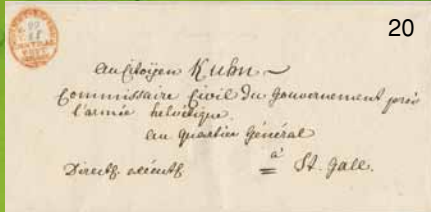 20
au Citoyen Kuhn
Commissaire Civil du Gouvernement près
l'armée helvétique
au quartier Général
à
Directf. exécutf. St. Gall.